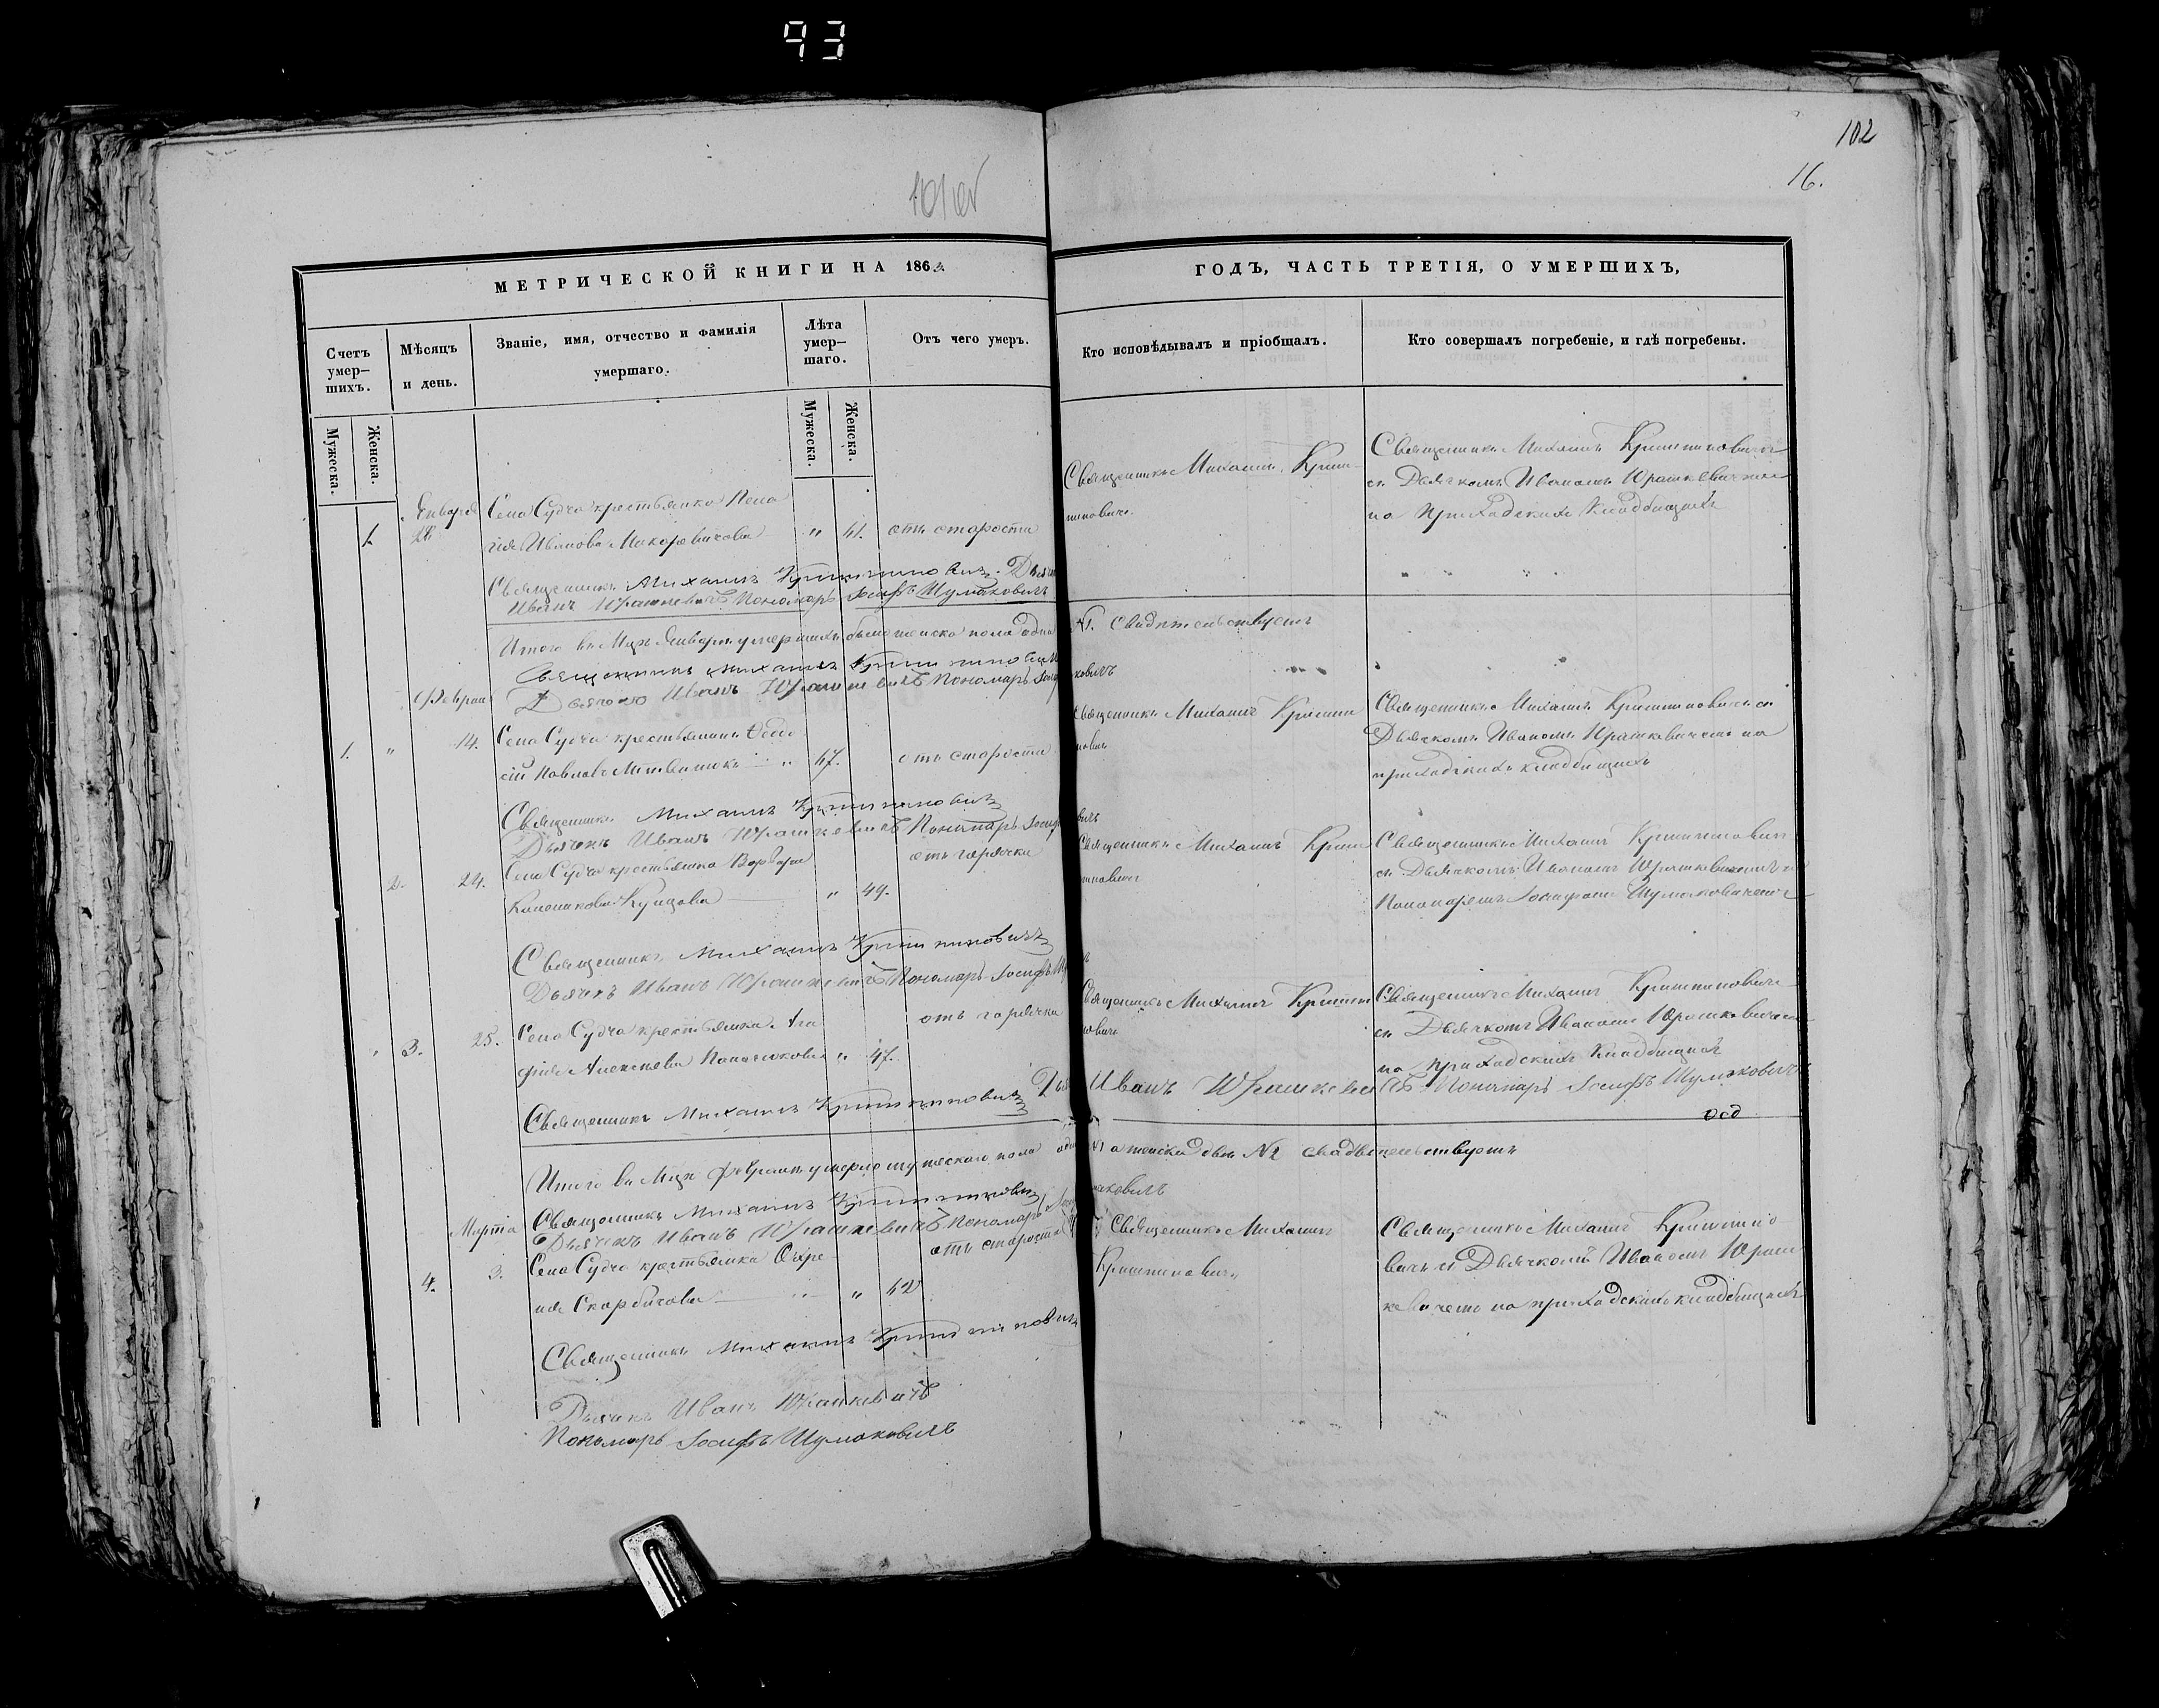 93
102
16.
МЕТРИЧЕСКОЙ КНИГИ НА 186
ГОДЪ, ЧАСТЬ ТРЕТІЯ, О УМЕРШИХЪ,
Счетъ умер-шихъ.
Мѣсяцъ и день.
Званіе, имя, отчество и фамилія умершаго.
Лѣта умер-шаго.
Отъ чего умеръ.
Кто исповѣдывалъ и пріобщалъ.
Кто совершалъ погребеніе, и гдѣ погребены.
Мужеска.
Женска.
Мужеска.
Женска.
Января
Села Судча крестьянка Пела
гія Иванова Макаровичова " 41. отъ старости
Священникъ Михаилъ Криш
пиновичъ.
Священникъ Михаилъ Кришпиновичъ
съ Дьячкомъ Иваномъ Юрашкевичемъ
на приходскихъ кладбищахъ
Священникъ Михаилъ Кришпиновичъ. Дьячекъ
Иванъ Юрашкевичъ Пономарь Іосифъ Шумаковичъ
Итого въ Мцѣ Январѣ умершихъ было женска пола одна №1. Свидѣтельствуемъ
Священникъ Михаилъ Кришпиновичъ
Дьячекъ Иванъ Юрашкевичъ Пономарь
Февраля
1. " 14. Села Судча крестьянинъ
Павловъ " 47. отъ старости
Священникъ Михаилъ Кришпи
новичъ
Священникъ Михаилъ Кришпиновичъ съ
Дьячкомъ Иваномъ Юрашкевичемъ на
приходскихъ кладбищахъ
Священникъ Михаилъ Кришпиновичъ
Дьячекъ Иванъ Юрашкевичъ Пономарь
2. 24. Села Судча крестьянка Варвара
" 49. отъ горячки
Священникъ Михаилъ Криш
пиновичъ
Священникъ Михаилъ Кришпиновичъ
съ Дьячкомъ Иваномъ Юрашкевичемъ и
Пономаремъ Іосифомъ Шумаковичемъ
Священникъ Михаилъ Кришпиновичъ
Дьячекъ Иванъ Юрашкевичъ Пономарь Іосифъ
" 3. 25. Села Судча крестьянка Ага
фія Алексѣева " 47. отъ горячки
Священникъ Михаилъ Кришпи
новичъ
Священникъ Михаилъ Кришпиновичъ
съ Дьячкомъ Иваномъ Юрашкевичемъ
на приходскихъ кладбищахъ
Священникъ Михаилъ Кришпиновичъ Иванъ Юрашкевичъ Пономарь Іосифъ Шумаковичъ
Итого въ Мцѣ Февралѣ умерло мужескаго пола №1 а женска две №2 свидѣтельствуемъ
Священникъ Михаилъ Кришпиновичъ
Дьячекъ Иванъ Юрашкевичъ Пономарь
Марта
4. 3. Села Судча крестьянка
Скорбичова " 42 отъ старости
Священникъ Михаилъ
Кришпиновичъ
Священникъ Михаилъ Кришпино
вичъ съ Дьячкомъ Иваномъ Юраш
кевичемъ на приходскихъ кладбищахъ
Священникъ Михаилъ Кришпиновичъ
Дьячекъ Иванъ Юрашкевичъ
Пономарь Іосифъ Шумаковичъ